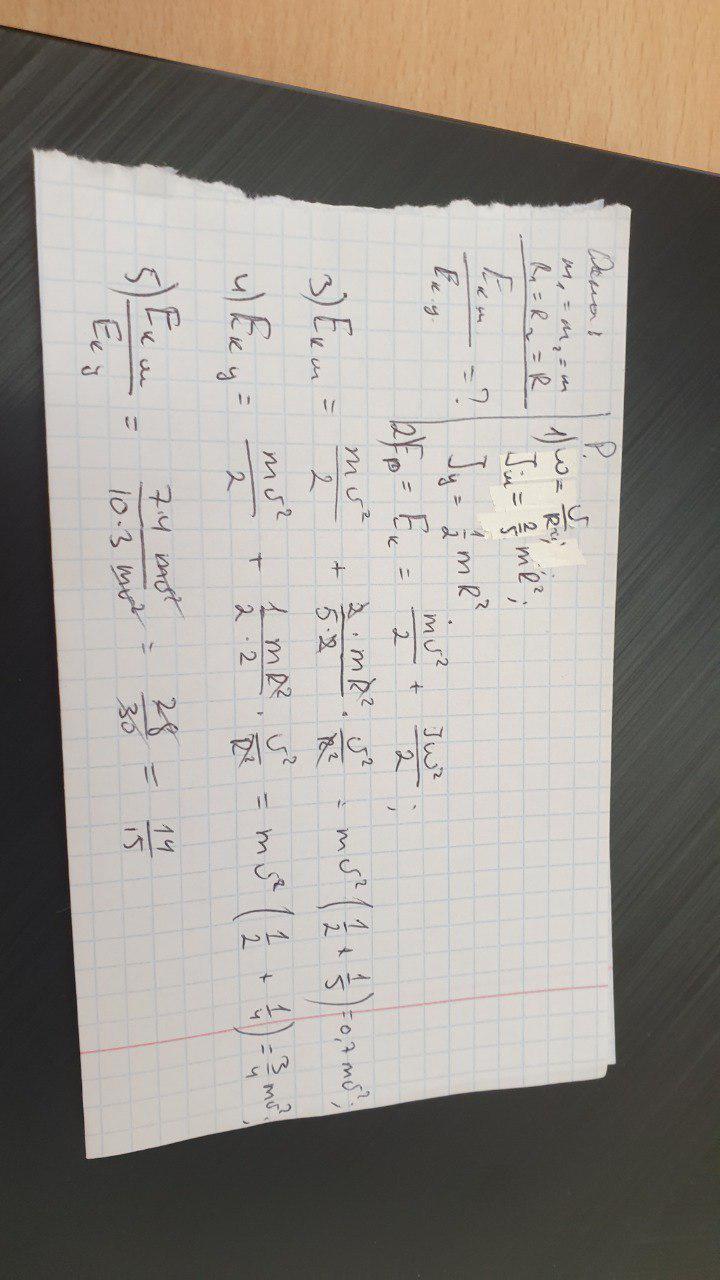 Дано:
m₁ = m₂ = m
R₁ = R₂ = R
Eк ш / Eк ц = ?
Р.
1) ω = υ/R;
Jш = 2/5 mR²;
Jц = 1/2 mR²
2) Eр = Eк = mυ²/2 + Jω²/2;
3) Eк ш = mυ²/2 + 2·mR²/5·2 · υ²/R² = mυ² (1/2 + 1/5) = 0,7 mυ²;
4) Eк ц = mυ²/2 + 1 mR²/2·2 · υ²/R² = mυ² (1/2 + 1/4) = 3/4 mυ²;
5) Eк ш / Eк ц = 7·4 mυ² / 10·3 mυ² = 28/30 = 14/15